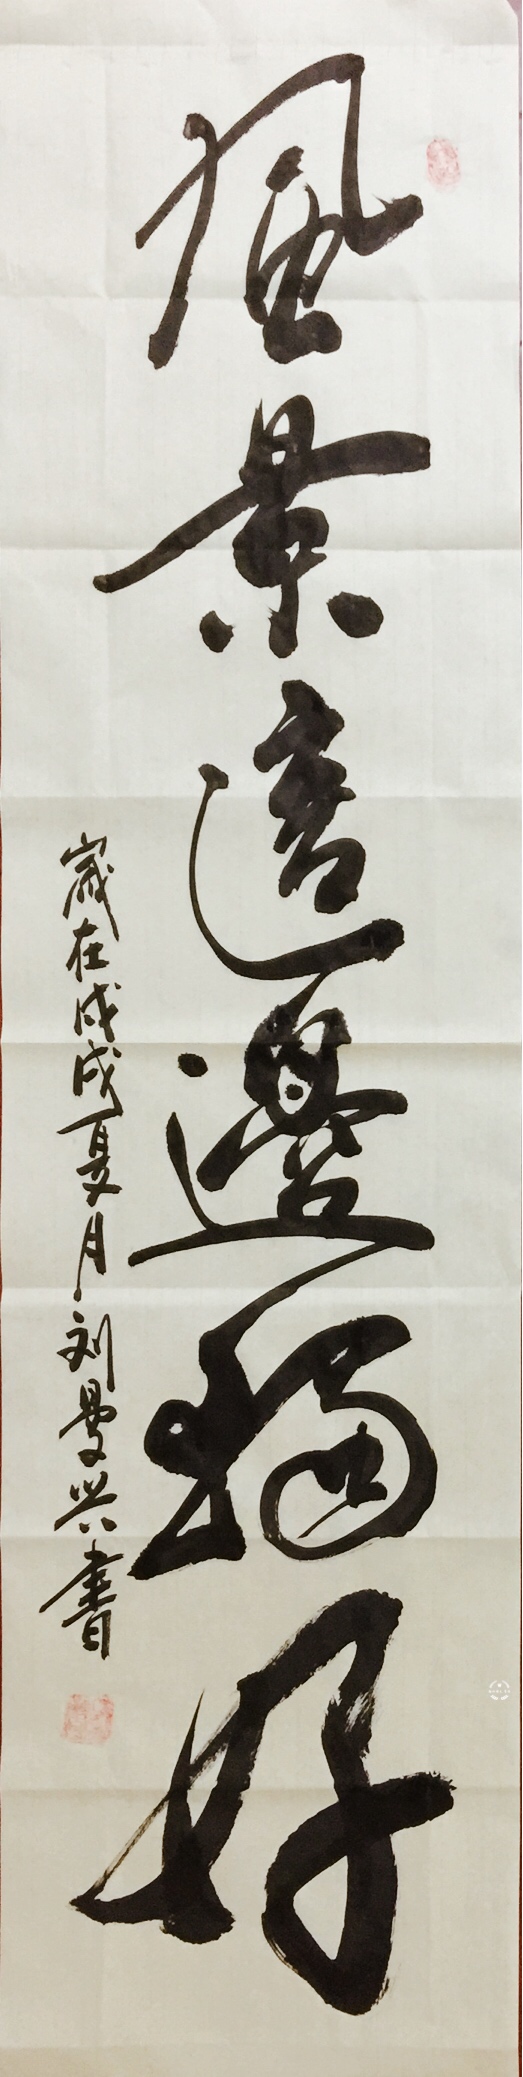 風景這邊獨好
歲在戊戌夏月刘曼兴書